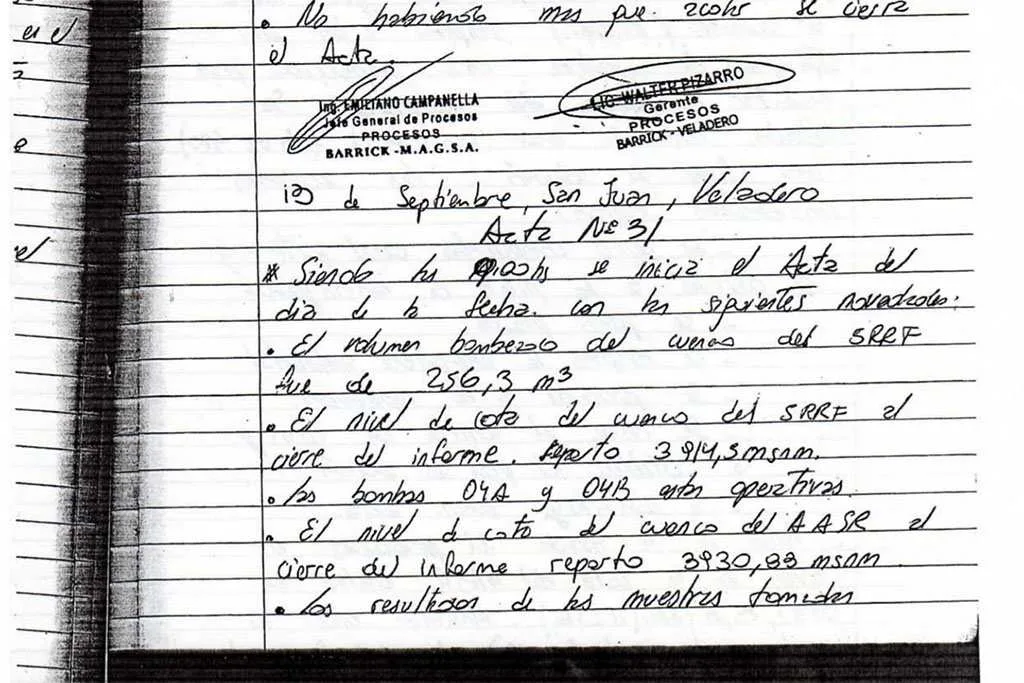 • No habiendo mas que. 20ohs se cierra
el Acta.
Ing. EMILIANO CAMPANELLA
Jefe General de Procesos
PROCESOS
BARRICK - M.A.G.S.A.
LIC. WALTER PIZARRO
Gerente
PROCESOS
BARRICK - VELADERO
13 de Septiembre, San Juan, Veladero
Acta Nº 31
* Siendo las 9,00hs se inicia el Acta del
dia de la fecha. con las siguientes novedades.
• El volumen bombeado del cuenco del SRRF
fue de 256,3 m³
• El nivel de cota del cuenco del SRRF al
cierre del informe. reporto 3914,5 msnm.
• las bombas 04A y 04B estan operativas.
• El nivel de cota del cuenco del AASR al
cierre del informe reporto 3930,83 msnm
• Los resultados de las muestras tomadas